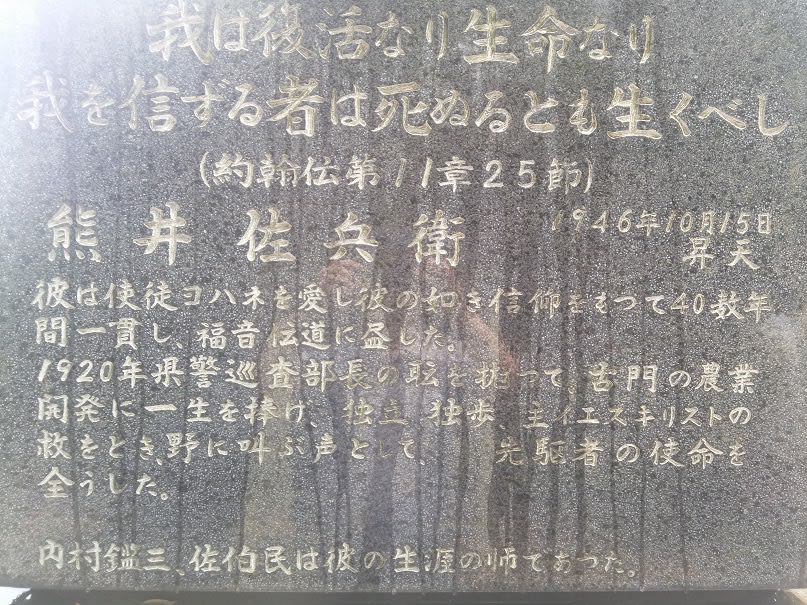 我は復活なり生命なり
我を信ずる者は死ぬるとも生くべし
(約翰伝第11章25節)
熊井佐兵衛 1946年10月15日
昇天
彼は使徒ヨハネを愛し彼の如き信仰をもつて40数年
間一貫し、福音伝道に尽した。
1920年県警巡査部長の職を抛つて、古門の農業
開発に一生を捧げ、独立、独歩、主イエスキリストの
救をとき、野に叫ぶ声として、先駆者の使命を
全うした。
内村鑑三、佐伯民は彼の生涯の師であつた。